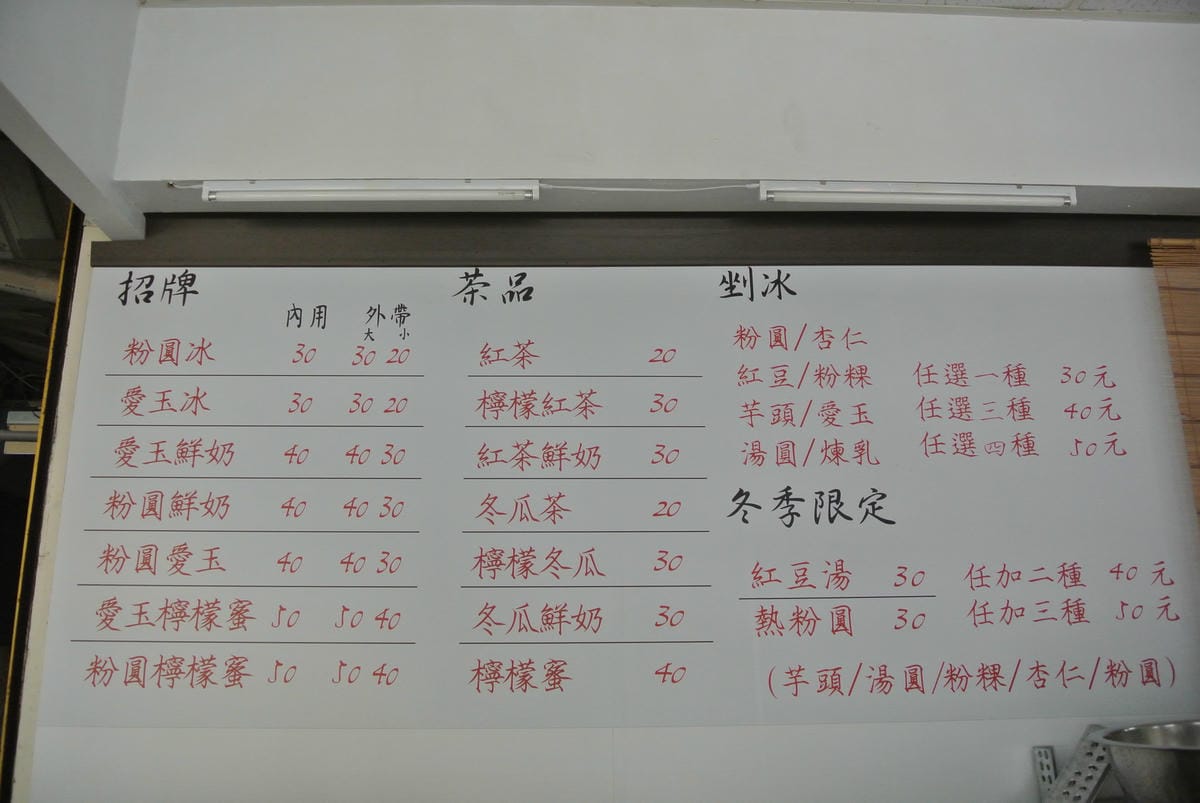 招牌
內用 外帶
大 小
粉圓冰 30 30 20
愛玉冰 30 30 20
愛玉鮮奶 40 40 30
粉圓鮮奶 40 40 30
粉圓愛玉 40 40 30
愛玉檸檬蜜 50 50 40
粉圓檸檬蜜 50 50 40
茶品
紅茶 20
檸檬紅茶 30
紅茶鮮奶 30
冬瓜茶 20
檸檬冬瓜 30
冬瓜鮮奶 30
檸檬蜜 40
剉冰
粉圓/杏仁
紅豆/粉粿 任選一種 30元
芋頭/愛玉 任選三種 40元
湯圓/煉乳 任選四種 50元
冬季限定
紅豆湯 30 任加二種 40元
熱粉圓 30 任加三種 50元
(芋頭/湯圓/粉粿/杏仁/粉圓)